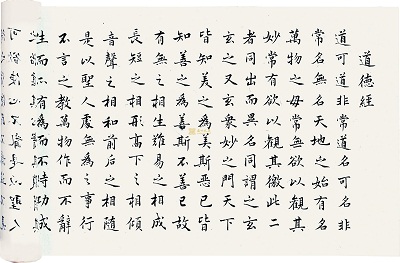 道德經
道可道非常道名可名非
常名無名天地之始有名
萬物之母常無欲以觀其
妙常有欲以觀其徼此二
者同出而異名同謂之玄
玄之又玄眾妙之門天下
皆知美之為美斯惡已皆
知善之為善斯不善已故
有無之相生難易之相成
長短之相形高下之相傾
音聲之相和前后之相隨
是以聖人處無為之事行
不言之教萬物作而不辭
生而不有為而不恃功成